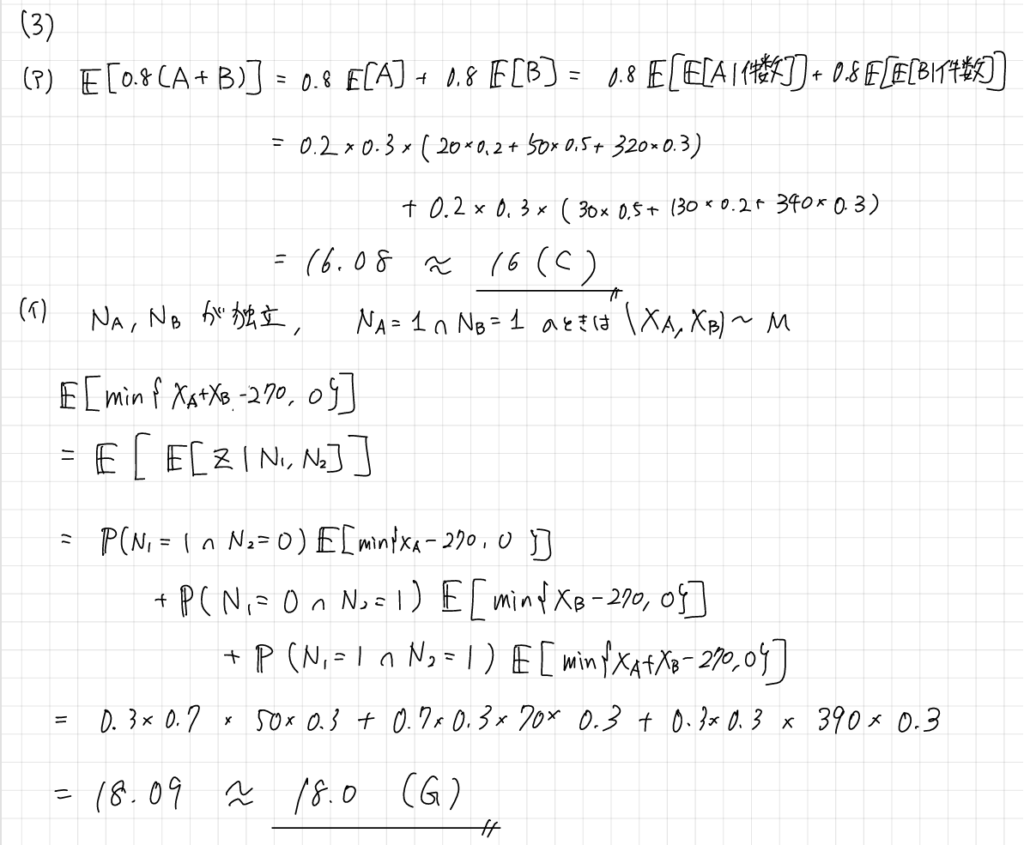 (3)
(ア) E[0.8(A+B)] = 0.8 E[A] + 0.8 E[B] = 0.8 E[E[A|件数]] + 0.8 E[E[B|件数]]
= 0.2 × 0.3 × (20×0.2 + 50×0.5 + 320×0.3)
+ 0.2 × 0.3 × (30×0.5 + 130×0.2 + 340×0.3)
= 16.08 ≈ 16 (C)
(イ) N_A, N_B が独立, N_A = 1 ∩ N_B = 1 のときは (X_A, X_B) ~ M
E[min{X_A+X_B-270, 0}]
= E[E[Z|N_1, N_2]]
= P(N_1 = 1 ∩ N_2 = 0) E[min{X_A-270, 0}]
+ P(N_1 = 0 ∩ N_2 = 1) E[min{X_B-270, 0}]
+ P(N_1 = 1 ∩ N_2 = 1) E[min{X_A+X_B-270, 0}]
= 0.3×0.7 × 50×0.3 + 0.7×0.3×70×0.3 + 0.3×0.3 × 390×0.3
= 18.09 ≈ 18.0 (G)